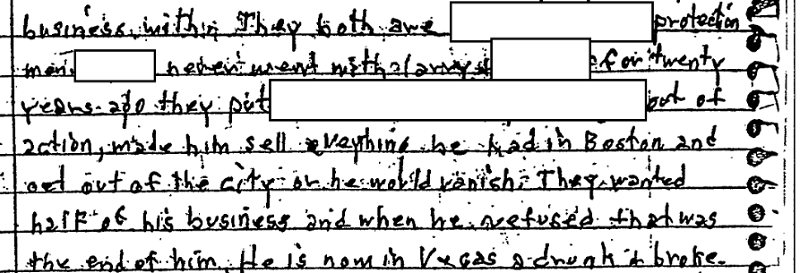 business within They both are protection
men. never went with Larrys for twenty
years ago they put out of
action, made him sell eveyhing he had in Boston and
get out of the city or he would vanish. They wanted
half of his business and when he refused that was
the end of him. He is now in Vegas a drunk & broke.